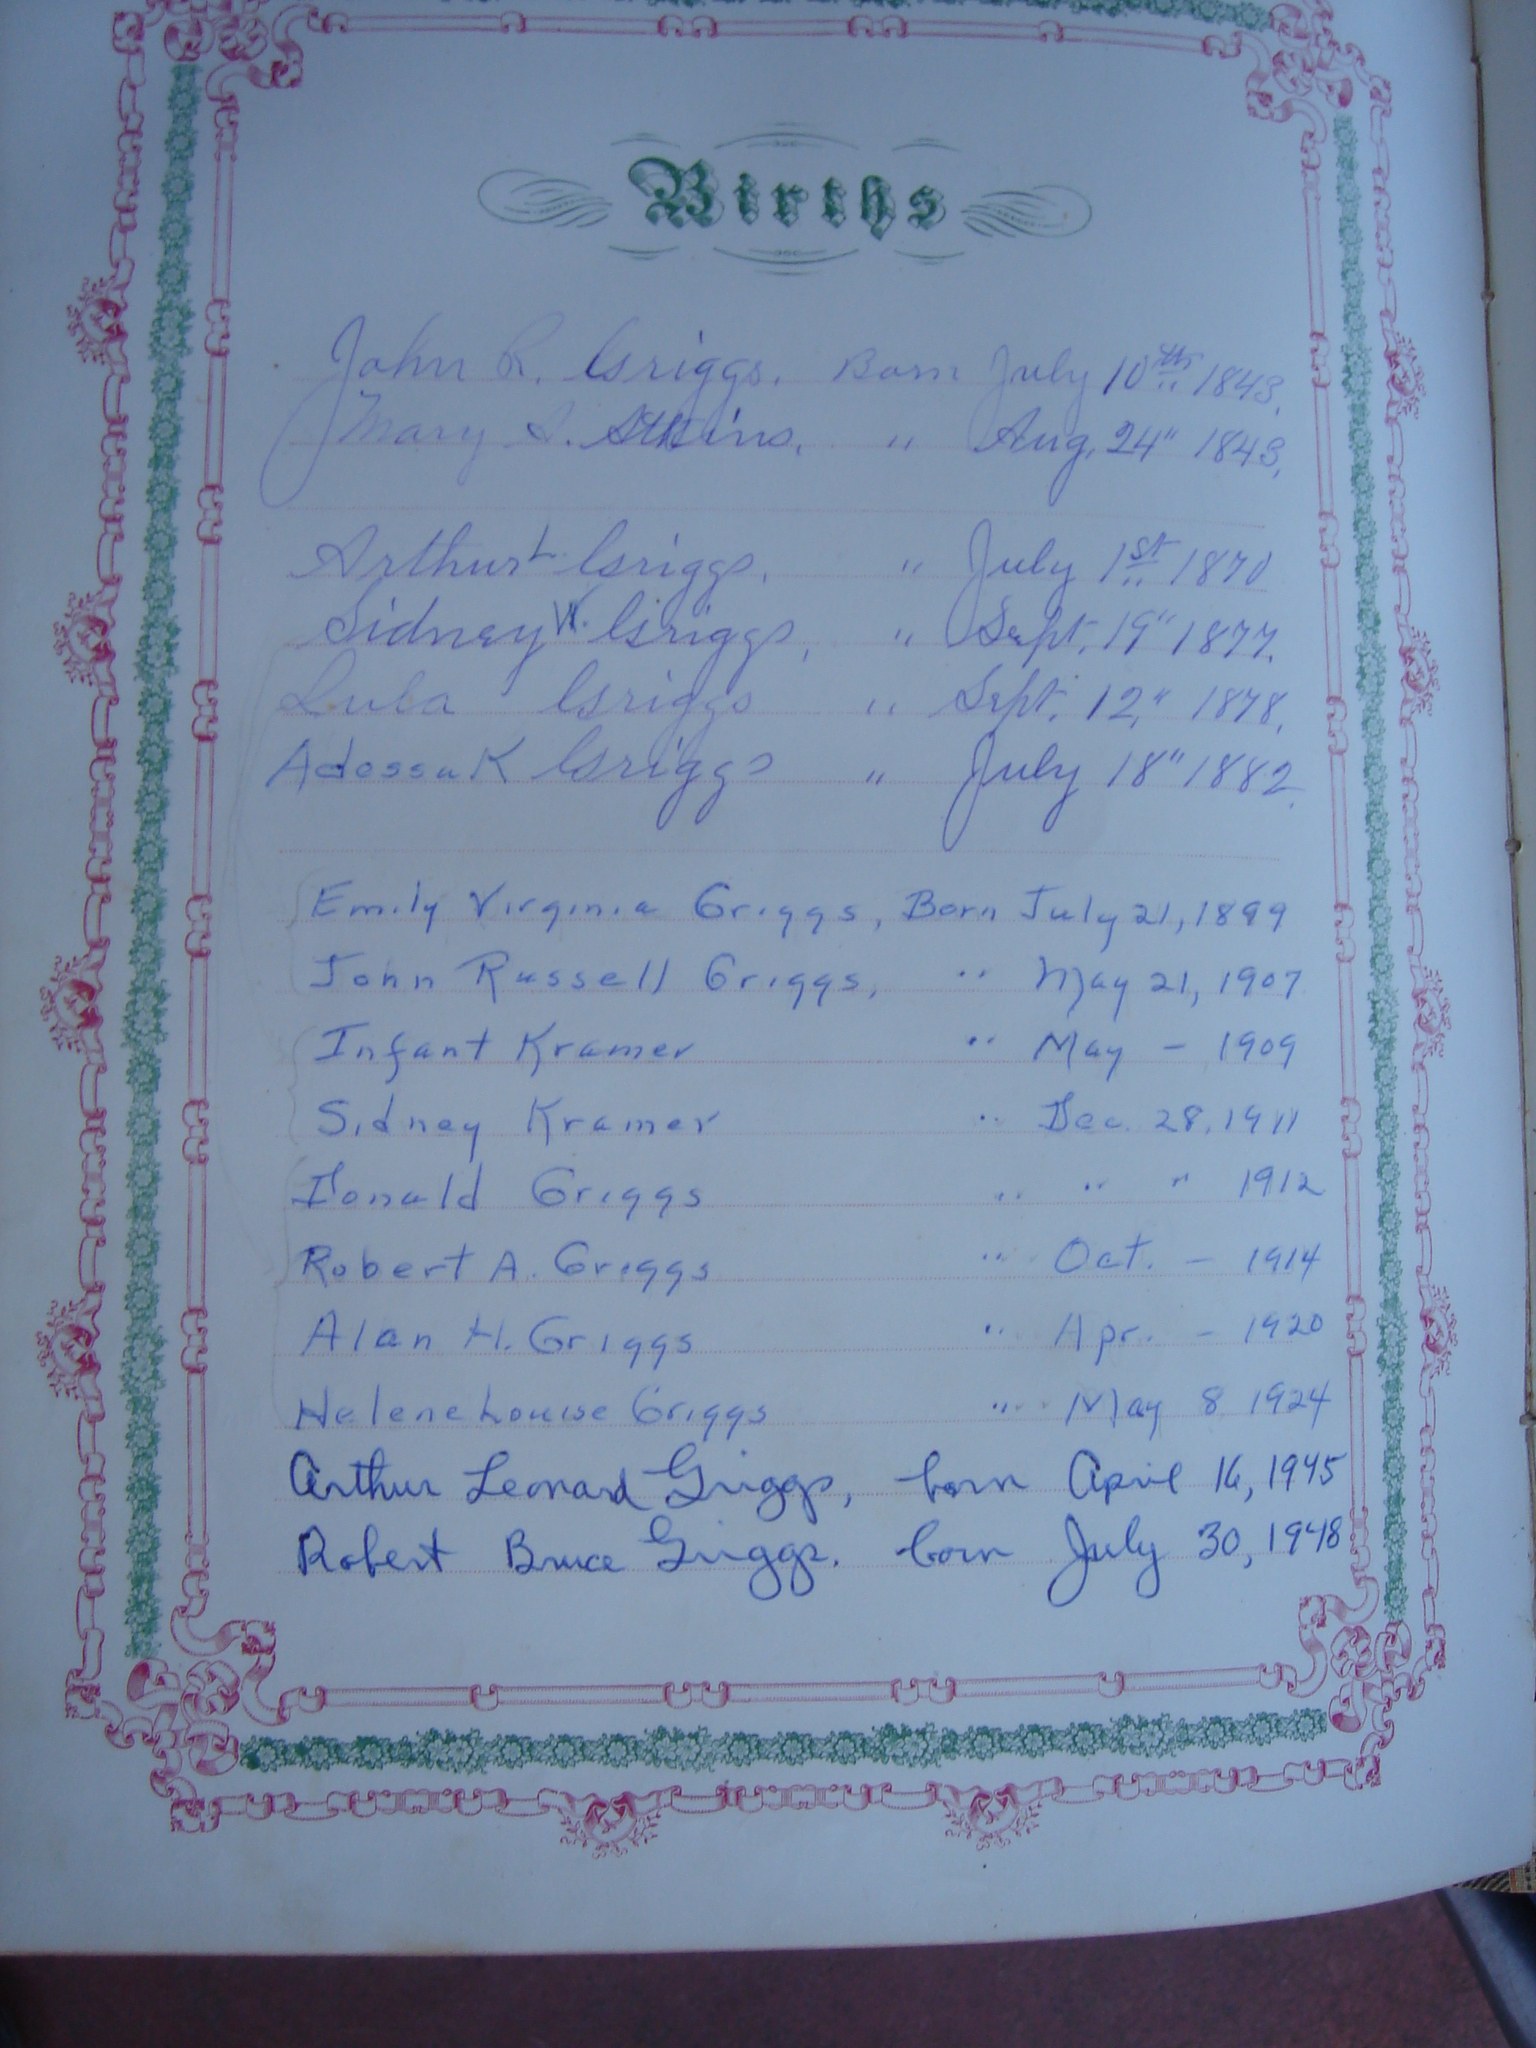 Births
John R. Griggs. Born July 10th 1843.
Mary S. Atkins. " Aug. 24" 1843.
Arthur L. Griggs. " July 1st 1870
Sidney W. Griggs, " Sept. 19" 1877.
Luba Griggs " Sept. 12," 1878.
Adessa K Griggs " July 18" 1882.
Emily Virginia Griggs, Born July 21, 1899
John Russell Griggs, " May 21, 1907
Infant Kramer " May - 1909
Sidney Kramer " Dec. 28, 1911
Donald Griggs " " " 1912
Robert A. Griggs " Oct. - 1914
Alan H. Griggs " Apr. - 1920
Helene Louise Griggs " May 8 1924
Arthur Leonard Griggs, born April 16, 1945
Robert Bruce Griggs. born July 30, 1948